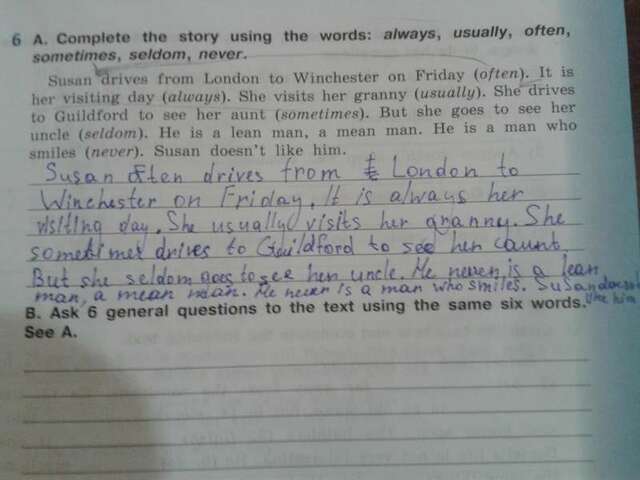 6 A. Complete the story using the words: always, usually, often,
sometimes, seldom, never.
Susan drives from London to Winchester on Friday (often). It is
her visiting day (always). She visits her granny (usually). She drives
to Guildford to see her aunt (sometimes). But she goes to see her
uncle (seldom). He is a lean man, a mean man. He is a man who
smiles (never). Susan doesn't like him.
Susan often drives from London to
Winchester on Friday. It is always her
visiting day. She usually visits her granny. She
sometimes drives to Guildford to see her caunt.
But she seldom goes to see her uncle. He never is a lean
man, a mean man. He never is a man who smiles. Susan doesn't
like him
B. Ask 6 general questions to the text using the same six words.
See A.